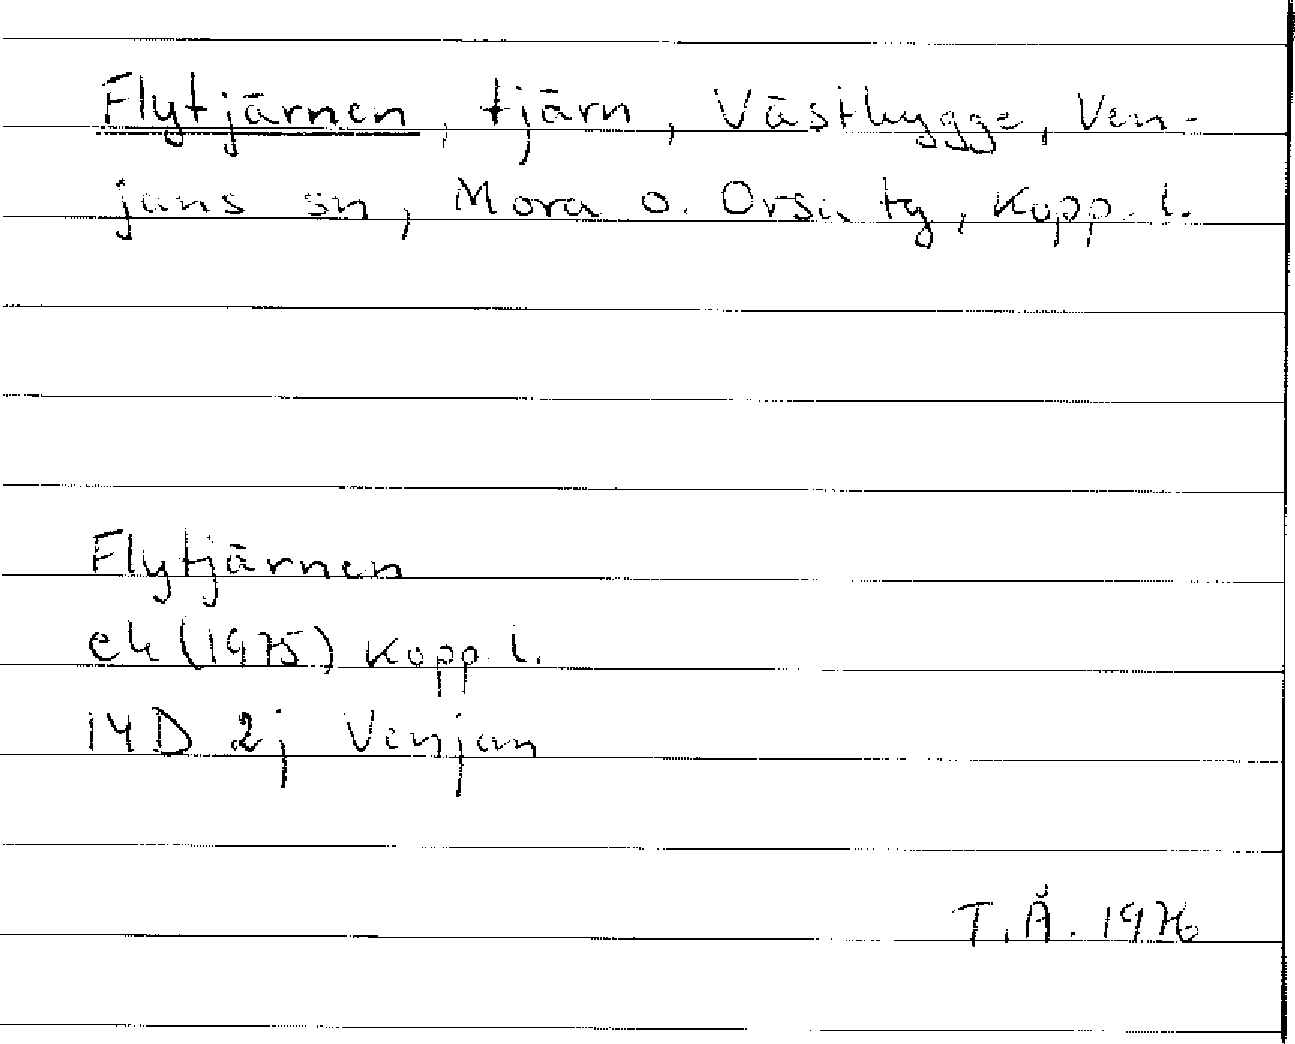 Flytjärnen, tjärn, Västbygge, Ven-
jans sn, Mora o. Orsa tg, Kopp. l.
Flytjärnen
ek (1975) Kopp. l.
14D 2j Venjan
T.Å. 1976